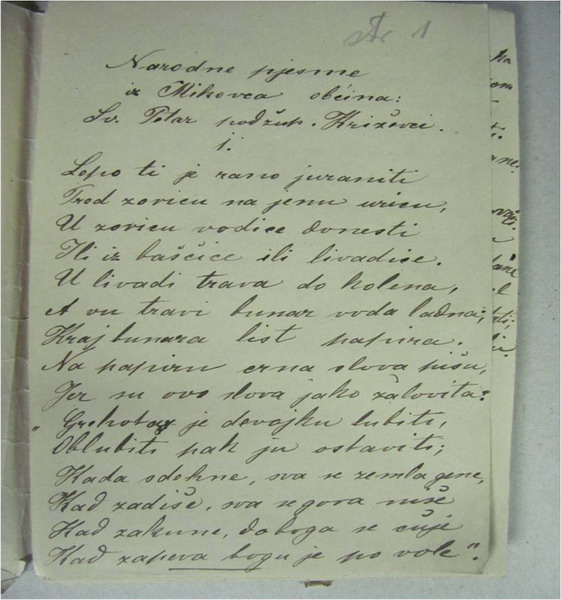 No 1
Narodne pjesme
iz Mikovca občina:
Sv. Petar podžup. Križevci.
1.
Lepo ti je rano juraniti
Pred zoricu na jenu uricu,
U zoricu vodice donesti
Ili iz baščice ili livadice.
U livadi trava do kolena,
A vu travi bunar voda ladna;
Kraj bunara list papira.
Na papiru crna slova pišu,
Jer su ovo slova jako žalovita:
"Grehota je devojku lubiti,
Oblubiti pak ju ostaviti;
Kada zdehne, sva se zemla gene,
Kad zadiše, sva se gora niše
Kad zakune, do boga se čuje
Kad zapeva bogu je po vole".